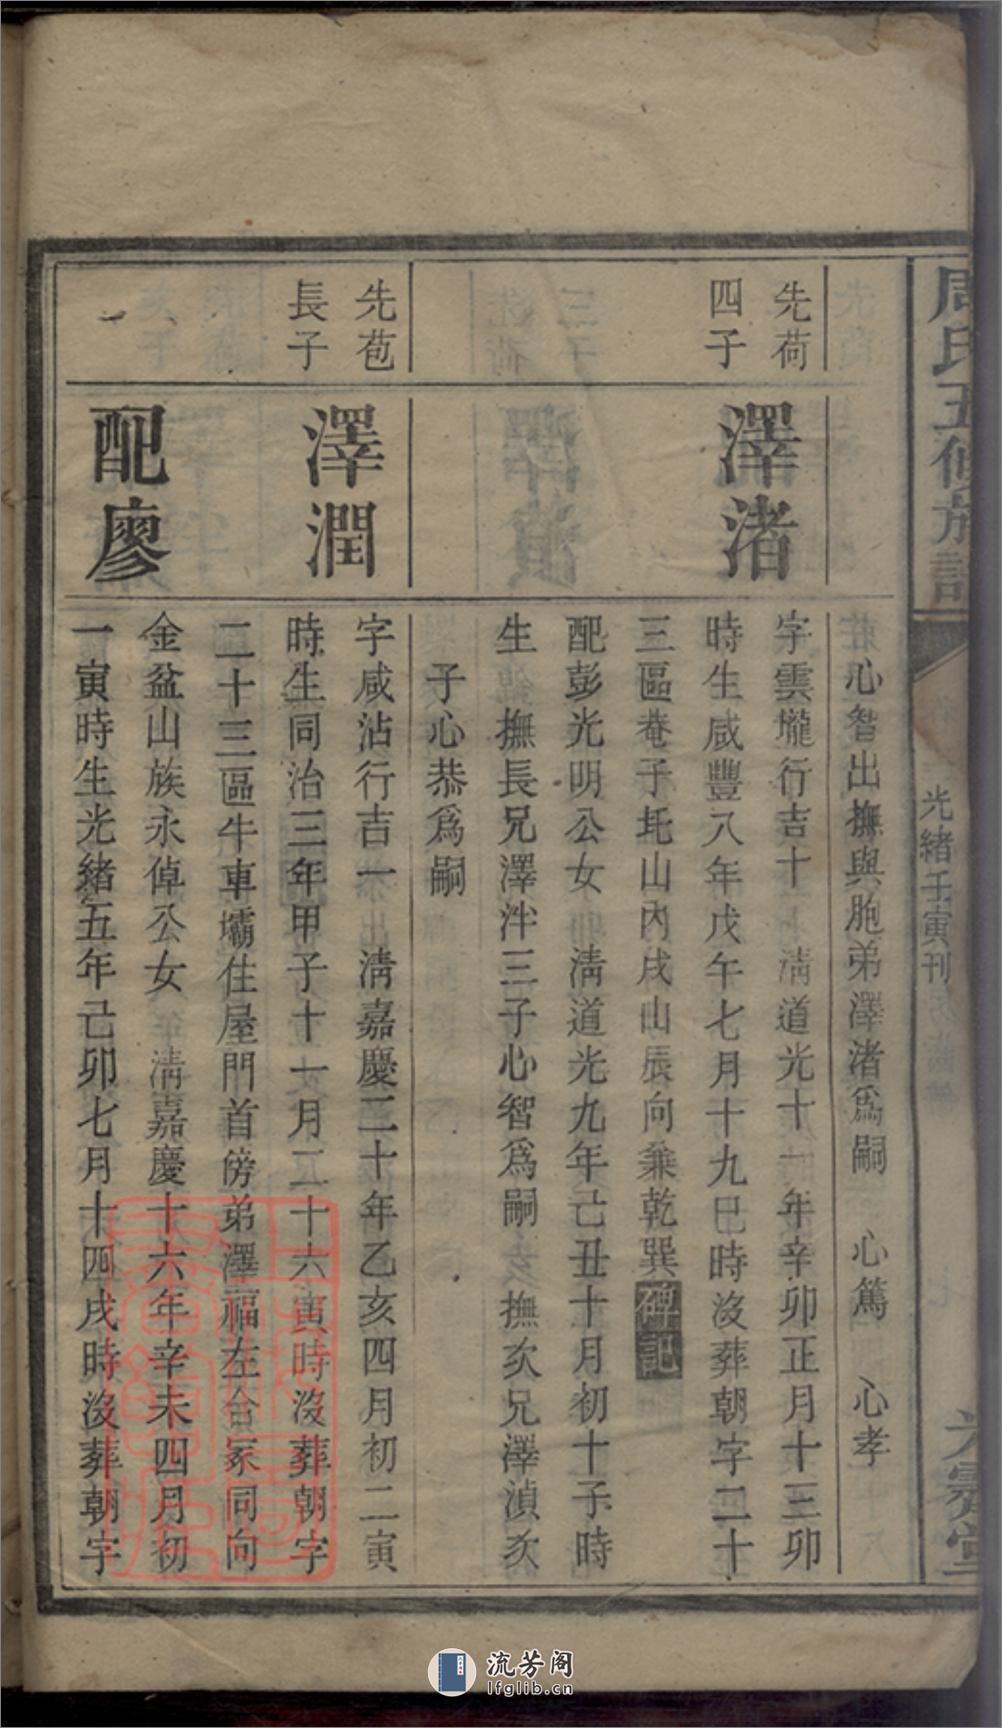 周氏五修族譜
光緒壬寅刊
心智出撫與胞弟澤渚爲嗣　心篤　心孝
先荷
四子
澤渚
字雲壠行吉十　淸道光十一年辛卯正月十三卯
時生咸豐八年戊午七月十九巳時沒葬朝字二十
三區菴子坵山內戌山辰向兼乾巽碑記
配彭光明公女　淸道光九年己丑十月初十子時
生　撫長兄澤泮三子心智爲嗣　撫次兄澤湞次
子心恭爲嗣
先苞
長子
澤潤
字咸沾行吉一　淸嘉慶二十年乙亥四月初二寅
時生同治三年甲子十一月二十六寅時沒葬朝字
二十三區牛車壩住屋門首傍弟澤福左合冢同向
配廖
金盆山族永倬公女　淸嘉慶十六年辛未四月初
一寅時生光緒五年己卯七月十四戌時沒葬朝字
流芳阁
lfglib.cn